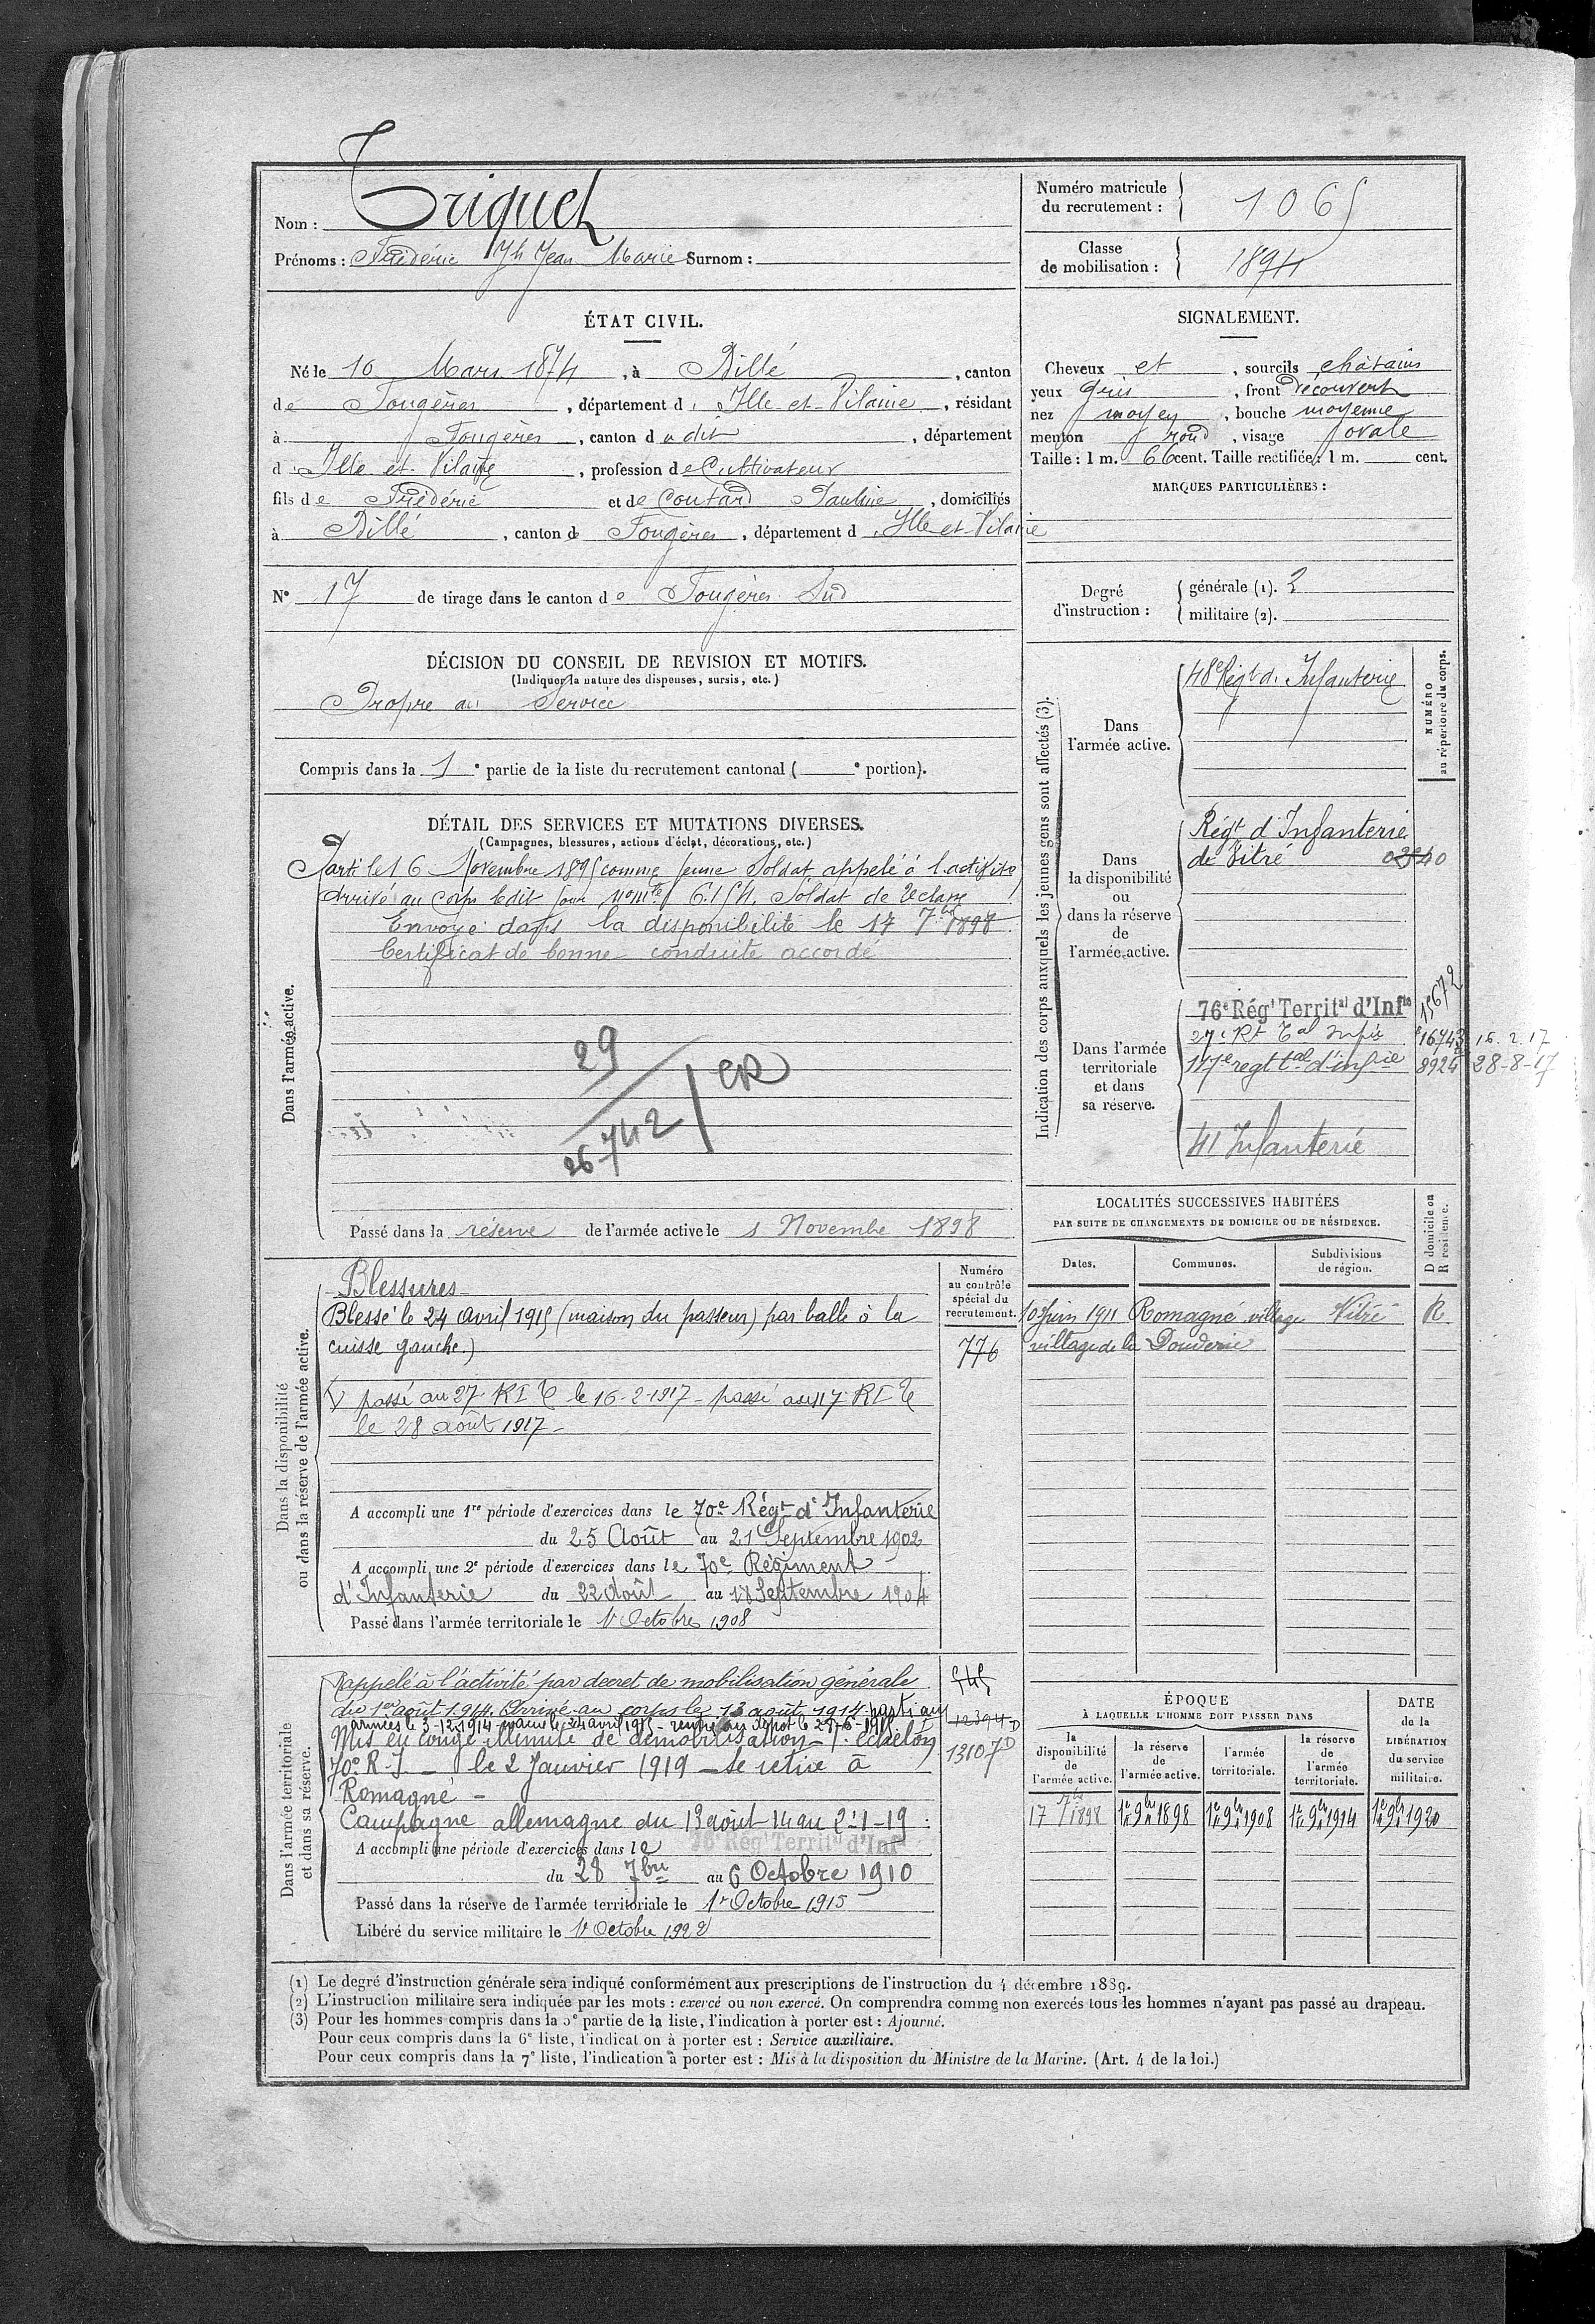 Nom : Triquet
Prénoms : Frédéric Jh Jean Marie Surnom :
Numéro matricule du recrutement : 1065
Classe de mobilisation : 1894
ÉTAT CIVIL.
Né le 10 Mars 1874, à Billé, canton
de Fougères, département d'Ille-et-Vilaine, résidant
à Fougères, canton du dit, département
d'Ille et Vilaine, profession de Cultivateur
fils de Frédéric et de Coutard Pauline, domiciliés
à Billé, canton de Fougères, département d'Ille-et-Vilaine
N° 17 de tirage dans le canton de Fougères Sud
SIGNALEMENT.
Cheveux et, sourcils châtains
yeux gris, front découvert
nez moyen, bouche moyenne
menton rond, visage ovale
Taille : 1 m. 66 cent. Taille rectifiée : 1 m. cent.
MARQUES PARTICULIÈRES :
Degré d'instruction :
générale (1). 2
militaire (2).
DÉCISION DU CONSEIL DE REVISION ET MOTIFS.
(Indiquer la nature des dispenses, sursis, etc.)
Propre au Service
Compris dans la 1e partie de la liste du recrutement cantonal ( e portion).
DÉTAIL DES SERVICES ET MUTATIONS DIVERSES.
(Campagnes, blessures, actions d'éclat, décorations, etc.)
Dans l'armée active.
Parti le 16 Novembre 1895 comme jeune Soldat appelé à l'activité
Arrivé au Corps ledit jour, 6.154. Soldat de 2e classe
Envoyé dans la disponibilité le 17 7bre 1898.
Certificat de bonne conduite accordé
29
26742 / CR
Passé dans la réserve de l'armée active le 1 Novembre 1898
Indication des corps auxquels les jeunes gens sont affectés (3).
NUMÉRO au répertoire du corps.
Dans l'armée active.
48e Régt d'Infanterie
Dans la disponibilité ou dans la réserve de l'armée active.
Régt d'Infanterie
de Vitré
Dans l'armée territoriale et dans sa réserve.
76e Régt Territal d'Infie 15672
27e Rt Tal Infie 16743 16.2.17
117e regt tal d'infie 8924 28-8-17
41 Infanterie
LOCALITÉS SUCCESSIVES HABITÉES
PAR SUITE DE CHANGEMENTS DE DOMICILE OU DE RÉSIDENCE.
Dates. Communes. Subdivisions de région. D domicile ou R résidence.
10 Juin 1911 Romagné village Vitré R.
village de la Douderie
Dans la disponibilité ou dans la réserve de l'armée active.
Numéro au contrôle spécial du recrutement.
776
Blessures
Blessé le 24 avril 1915 (maison du passeur) par balle à la
cuisse gauche.)
passé au 27 RIT le 16-2-1917 - passé au 117 RIT
le 28 août 1917 -
A accompli une 1re période d'exercices dans le 70e Régt d'Infanterie
du 25 Août au 21 Septembre 1902
A accompli une 2e période d'exercices dans le 70e Régiment
d'Infanterie du 22 Août au 18 Septembre 1904
Passé dans l'armée territoriale le 1r Octobre 1908
Dans l'armée territoriale et dans sa réserve.
Rappelé à l'activité par decret de mobilisation générale 545
du 1er août 1914. Arrivé au corps le 13 août 1914. parti aux 12394 D
armées le 3-12-1914 évacué le 24 avril 1915 - rentré au dépôt le 28-6-1915.
Mis en congé illimité de démobilisation échelon 13107 D
70e R.I. - le 2 Janvier 1919 - Se retire à
Romagné -
Campagne allemagne du 13 août 14 au 2-1-19
A accompli une période d'exercices dans le 76e Régt Territal d'Infie
du 28 7bre au 6 Octobre 1910
Passé dans la réserve de l'armée territoriale le 1r Octobre 1915
Libéré du service militaire le 1r Octobre 1922
ÉPOQUE
À LAQUELLE L'HOMME DOIT PASSER DANS
DATE de la LIBÉRATION du service militaire.
la disponibilité de l'armée active. la réserve de l'armée active. l'armée territoriale. la réserve de l'armée territoriale.
17 7bre 1898 1er 9bre 1898 1er 9bre 1908 1er 9bre 1914 1er 9bre 1920
(1) Le degré d'instruction générale sera indiqué conformément aux prescriptions de l'instruction du 4 décembre 1889.
(2) L'instruction militaire sera indiquée par les mots : exercé ou non exercé. On comprendra comme non exercés tous les hommes n'ayant pas passé au drapeau.
(3) Pour les hommes compris dans la 5e partie de la liste, l'indication à porter est : Ajourné.
Pour ceux compris dans la 6e liste, l'indication à porter est : Service auxiliaire.
Pour ceux compris dans la 7e liste, l'indication à porter est : Mis à la disposition du Ministre de la Marine. (Art. 4 de la loi.)